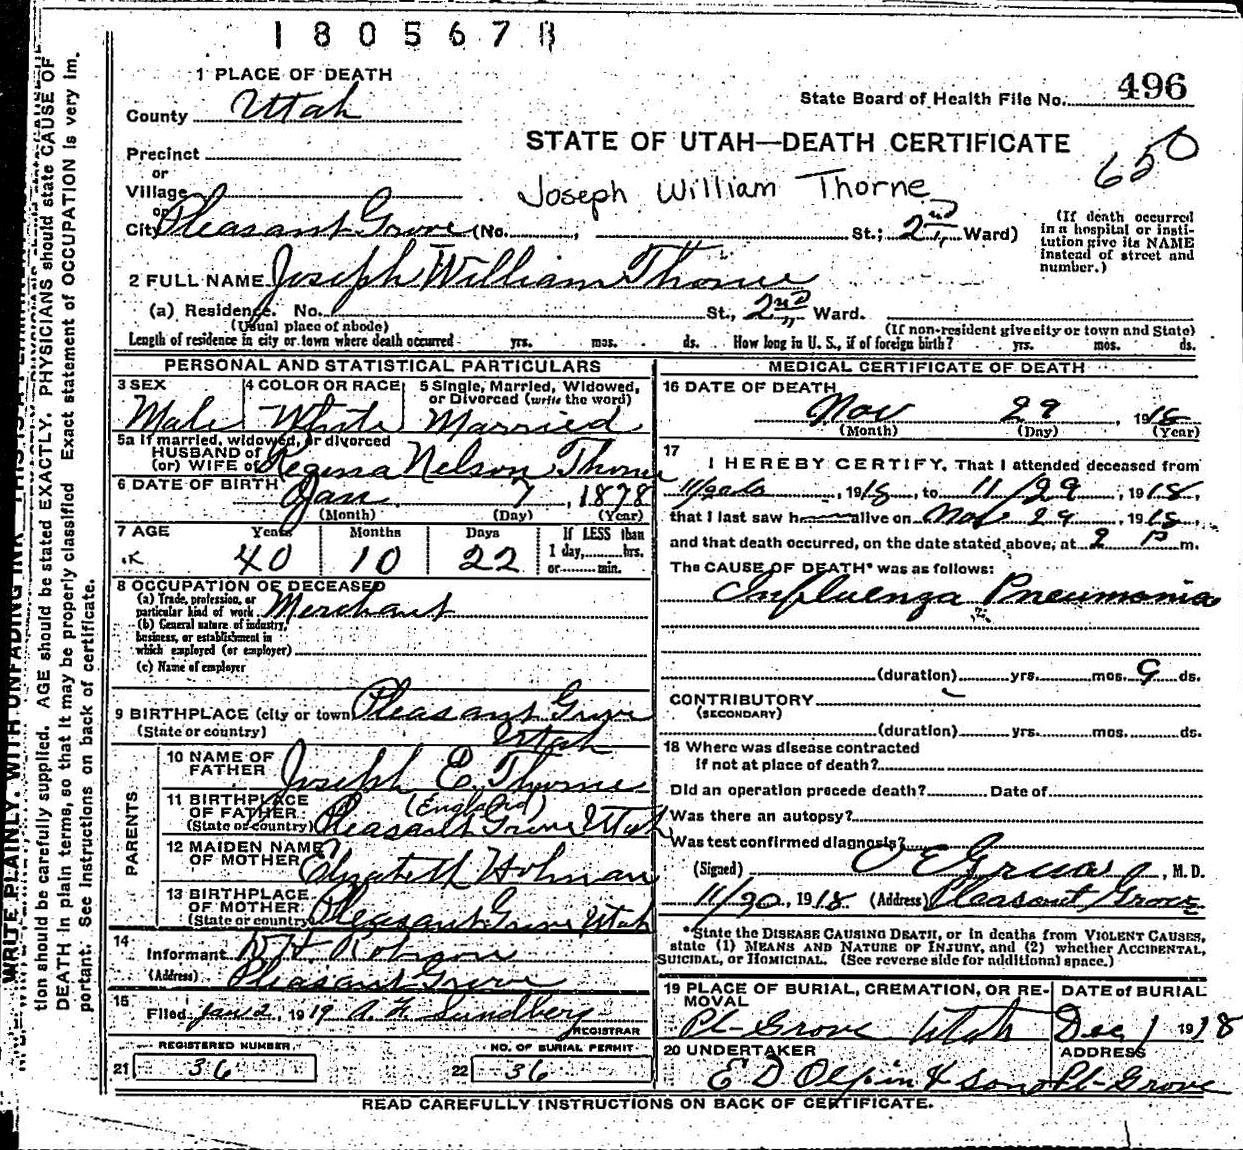 1805678
1 PLACE OF DEATH
County Utah
State Board of Health File No. 496
STATE OF UTAH—DEATH CERTIFICATE
650
Precinct
or
Village
Joseph William Thorne
or
City Pleasant Grove (No. , St.; 2nd Ward)
(If death occurred in a hospital or institution give its NAME instead of street and number.)
2 FULL NAME Joseph William Thorne
(a) Residence. No. St., 2nd Ward.
(Usual place of abode) (If non-resident give city or town and State)
Length of residence in city or town where death occurred yrs. mos. ds. How long in U. S., if of foreign birth? yrs. mos. ds.
PERSONAL AND STATISTICAL PARTICULARS
3 SEX Male
4 COLOR OR RACE White
5 Single, Married, Widowed, or Divorced (write the word) Married
5a If married, widowed, or divorced
HUSBAND of
(or) WIFE of Regena Nelson Thorne
6 DATE OF BIRTH Jan 7, 1878
(Month) (Day) (Year)
7 AGE Years Months Days If LESS than
40 10 22 1 day, hrs.
or min.
8 OCCUPATION OF DECEASED
(a) Trade, profession, or particular kind of work Merchant
(b) General nature of industry, business, or establishment in which employed (or employer)
(c) Name of employer
9 BIRTHPLACE (city or town) Pleasant Grove
(State or country) Utah
PARENTS
10 NAME OF FATHER Joseph E. Thorne
11 BIRTHPLACE OF FATHER (England)
(State or country) Pleasant Grove Utah
12 MAIDEN NAME OF MOTHER Elizabeth Holman
13 BIRTHPLACE OF MOTHER
(State or country) Pleasant Grove Utah
14
Informant
(Address) Pleasant Grove
15
Filed Jan 2, 1919 A. F. Sundberg
REGISTRAR
REGISTERED NUMBER
21 36
NO. OF BURIAL PERMIT
22 36
MEDICAL CERTIFICATE OF DEATH
16 DATE OF DEATH
Nov 29, 1918
(Month) (Day) (Year)
17
I HEREBY CERTIFY, That I attended deceased from
, 1918, to 11/29, 1918,
that I last saw h alive on Nov 29 1918,
and that death occurred, on the date stated above, at 2 P m.
The CAUSE OF DEATH* was as follows:
Influenza Pneumonia
(duration) yrs. mos. 9 ds.
CONTRIBUTORY
(SECONDARY)
(duration) yrs. mos. ds.
18 Where was disease contracted
if not at place of death?
Did an operation precede death? Date of
Was there an autopsy?
Was test confirmed diagnosis?
(Signed) , M. D.
11/30, 1918 (Address) Pleasant Grove
*State the DISEASE CAUSING DEATH, or in deaths from VIOLENT CAUSES,
state (1) MEANS AND NATURE OF INJURY, and (2) whether ACCIDENTAL,
SUICIDAL, or HOMICIDAL. (See reverse side for additional space.)
19 PLACE OF BURIAL, CREMATION, OR REMOVAL
Pl- Grove Utah
DATE of BURIAL
Dec 1 1918
20 UNDERTAKER
E D Olpin & Sons
ADDRESS
Pl- Grove
READ CAREFULLY INSTRUCTIONS ON BACK OF CERTIFICATE.
WRITE PLAINLY, WITH UNFADING INK
tion should be carefully supplied. AGE should be stated EXACTLY. PHYSICIANS should state CAUSE OF
DEATH in plain terms, so that it may be properly classified Exact statement of OCCUPATION is very im-
portant. See instructions on back of certificate.